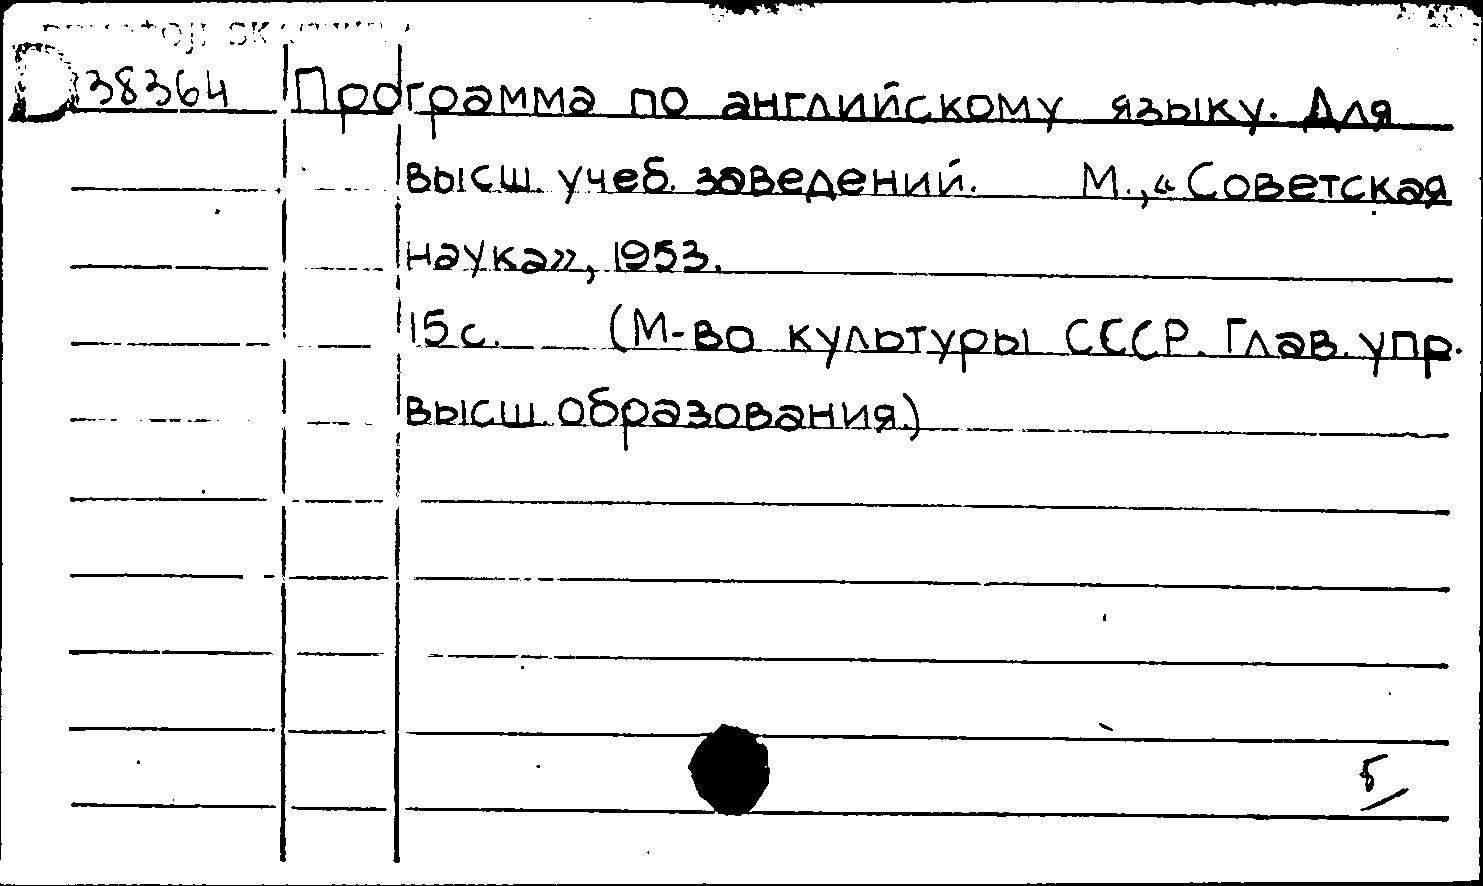 D 38364 Программа по английскому языку. Для
высш. учеб. заведений. М., «Советская
наука», 1953.
15 с. (М-во культуры СССР. Глав. упр.
высш. образования.)
5